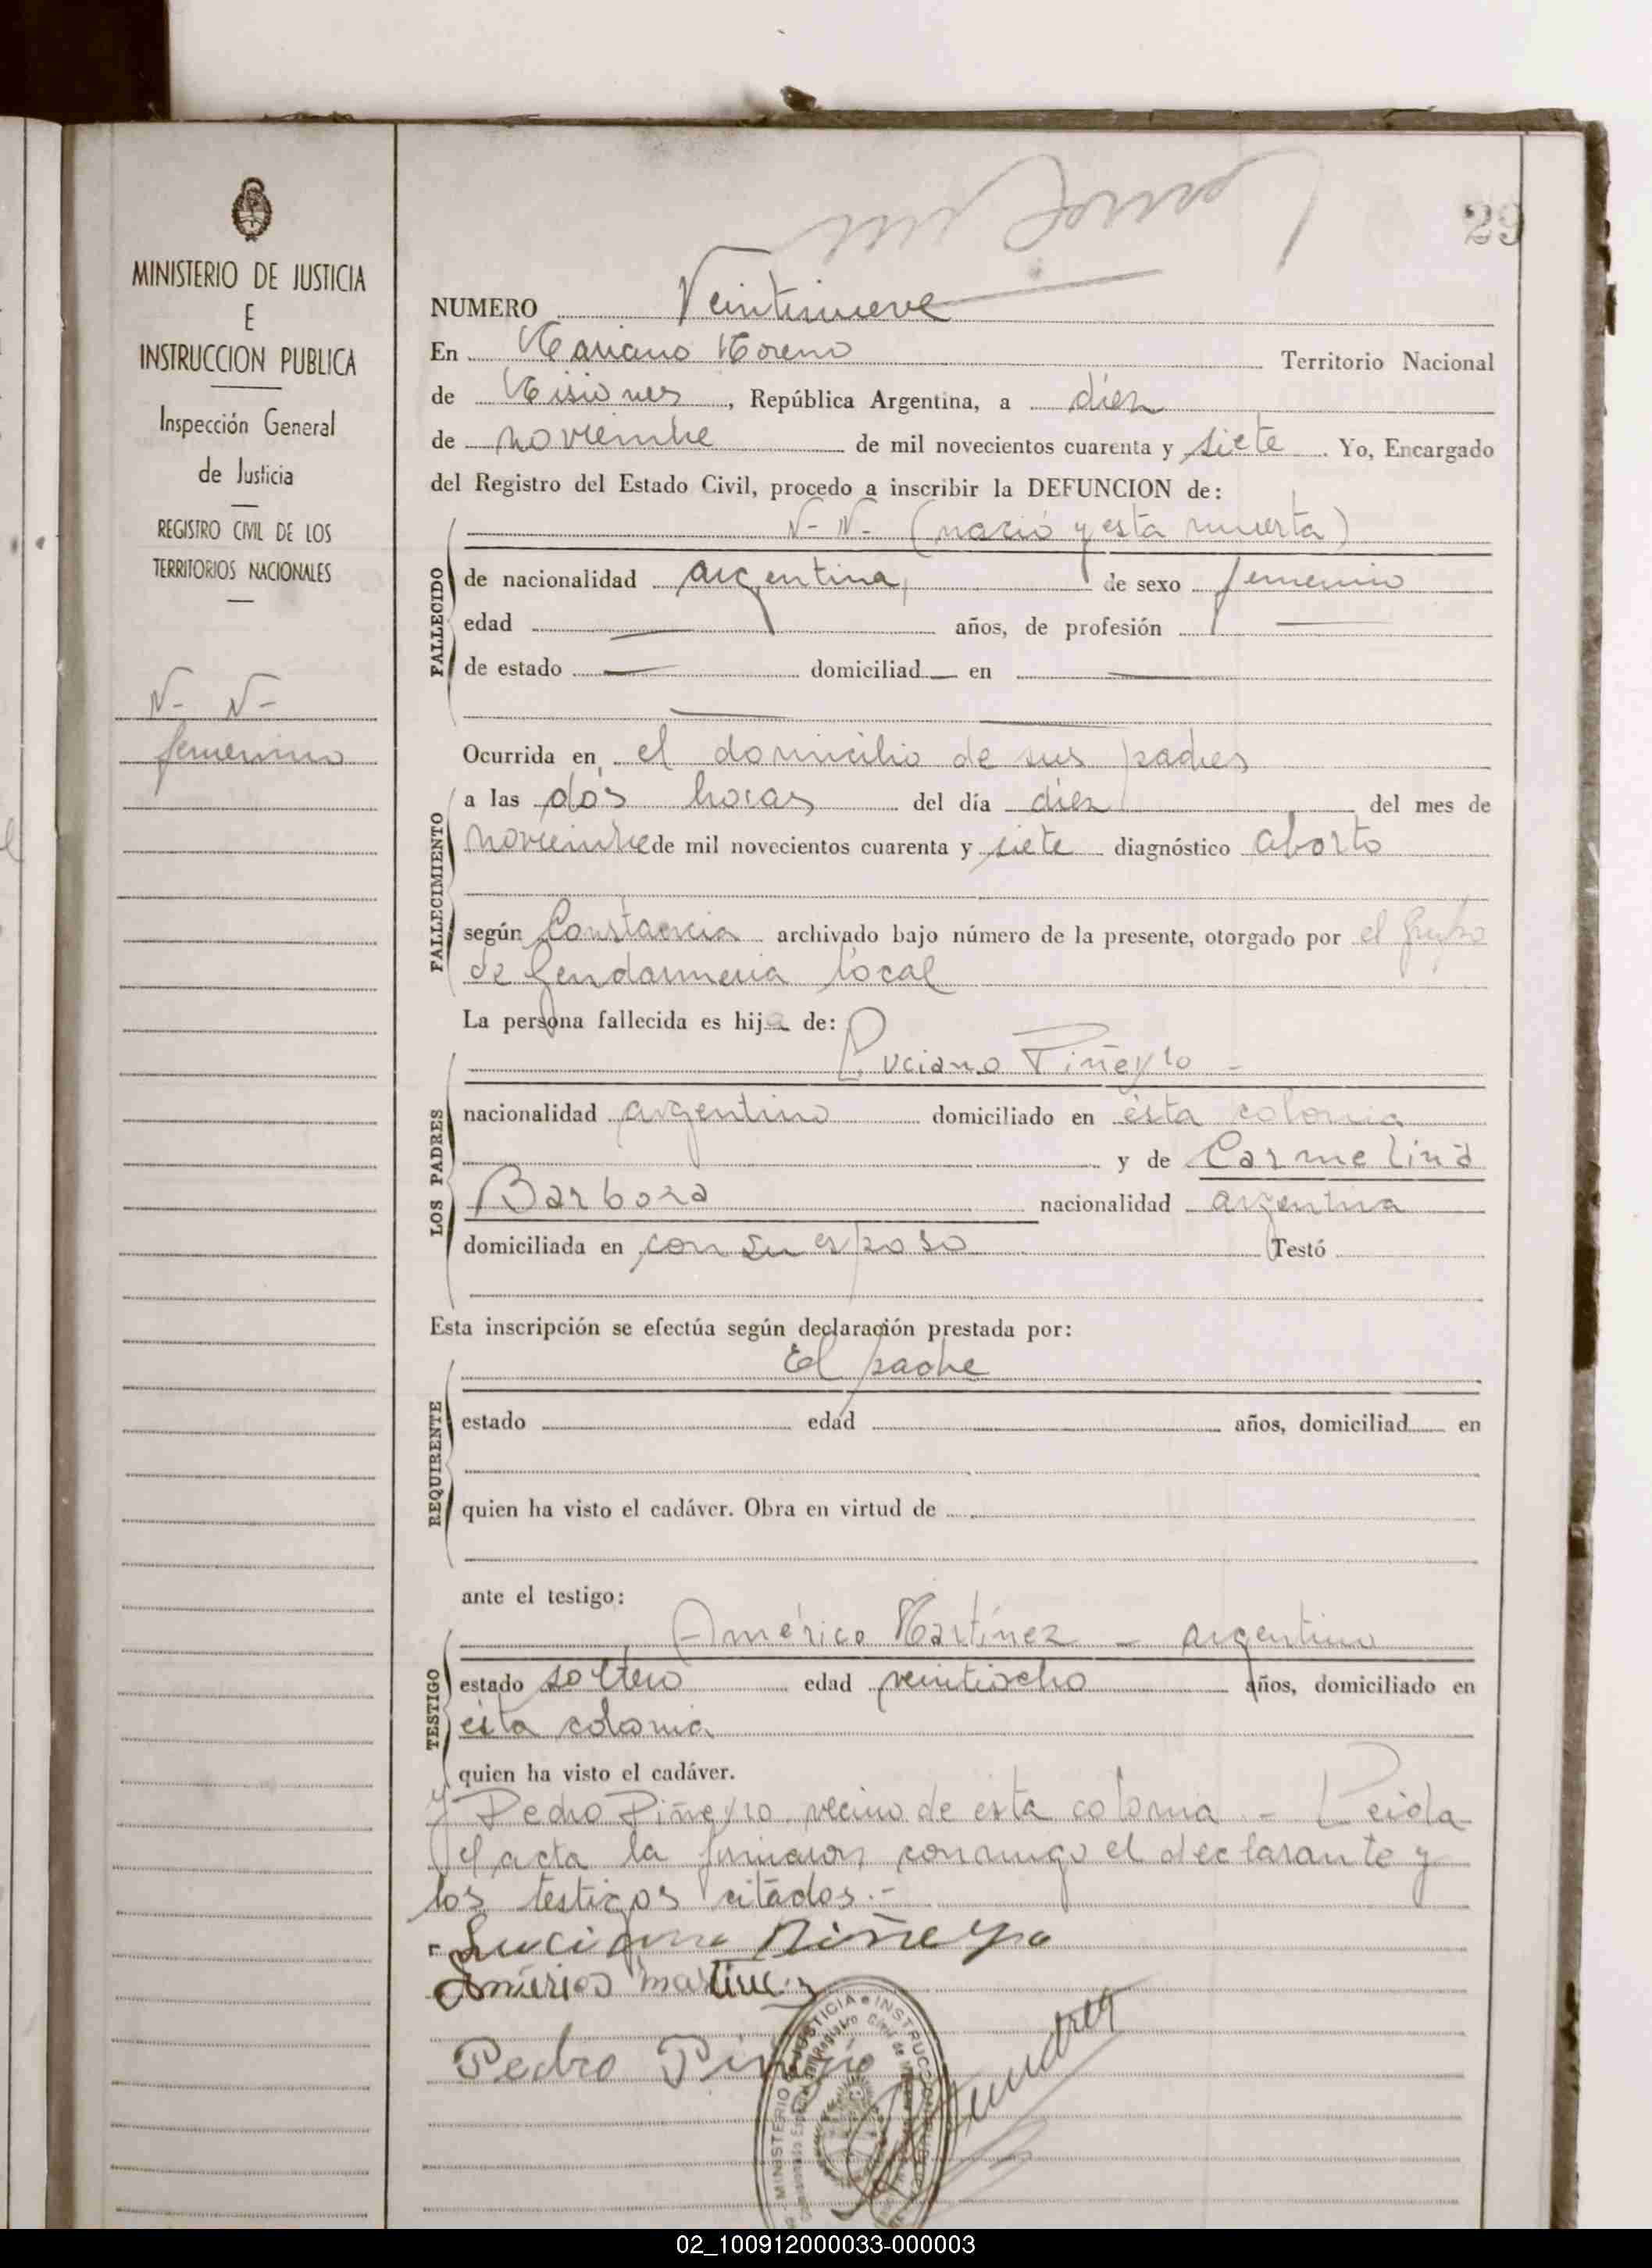 29
MINISTERIO DE JUSTICIA
E
INSTRUCCION PUBLICA
Inspección General
de Justicia
REGISTRO CIVIL DE LOS
TERRITORIOS NACIONALES
N- N-
femenino
NUMERO Veintinueve
En Mariano Moreno Territorio Nacional
de Misiones, República Argentina, a diez
de noviembre de mil novecientos cuarenta y siete. Yo, Encargado
del Registro del Estado Civil, procedo a inscribir la DEFUNCION de:
FALLECIDO
N- N- (nació y esta muerta)
de nacionalidad argentina, de sexo femenino
edad — años, de profesión —
de estado — domiciliad— en —
Ocurrida en el domicilio de sus padres
FALLECIMIENTO
a las dos horas del día diez del mes de
noviembre de mil novecientos cuarenta y siete diagnóstico aborto
según Constancia archivado bajo número de la presente, otorgado por el Grupo
de Gendarmeria local
La persona fallecida es hija de:
LOS PADRES
Luciano Piñeyro -
nacionalidad argentino domiciliado en ésta colonia
y de Carmelina
Barboza nacionalidad argentina
domiciliada en con su esposo Testó
Esta inscripción se efectúa según declaración prestada por:
REQUIRENTE
El padre
estado edad años, domiciliad en
quien ha visto el cadáver. Obra en virtud de
ante el testigo:
TESTIGO
Américo Martínez - argentino
estado soltero edad veintiocho años, domiciliado en
esta colonia
quien ha visto el cadáver.
y Pedro Piñeyro vecino de esta colonia - Leida
el acta la firmaron conmigo el declarante y
los testigos citados.-
Luciano Piñeyro
Américo Martinez
Pedro
MINISTERIO DE JUSTICIA e INSTRUCCION
02_100912000033-000003